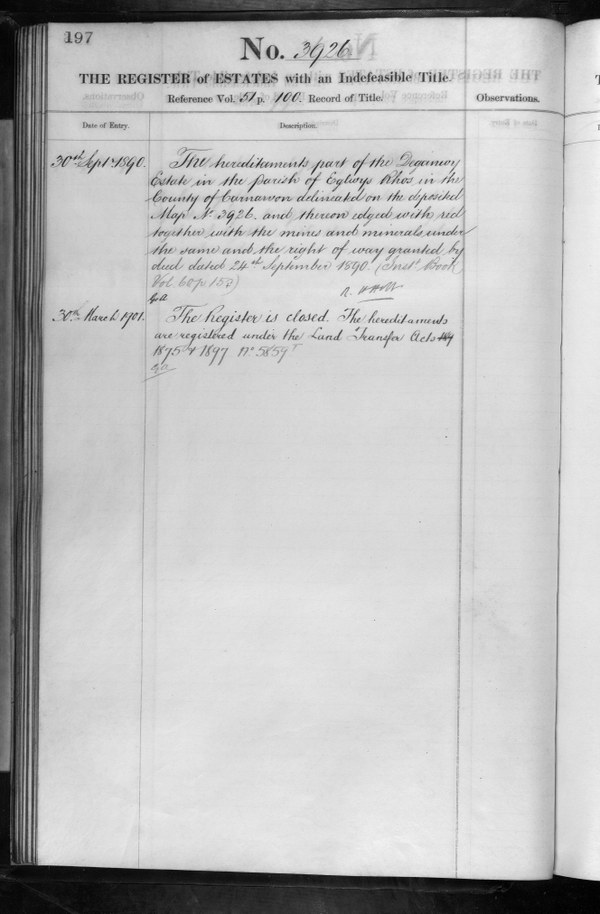 197
No. 3926
THE REGISTER of ESTATES with an Indefeasible Title.
Reference Vol. 51 p. 100. Record of Title.
Observations.
Date of Entry.
Description.
30th Sept 1890.
The hereditaments part of the Deganwy
Estate in the Parish of Eglwys Rhos in the
County of Carnarvon delineated on the deposited
Map No 3926. and thereon edged with red
together with the mines and minerals under
the same and the right of way granted by
deed dated 24th September 1890. (Inst. Book
Vol. 60 p 153)
30th March 1901.
The Register is closed. The hereditaments
are registered under the Land Transfer Acts
1875 & 1897 No 5859